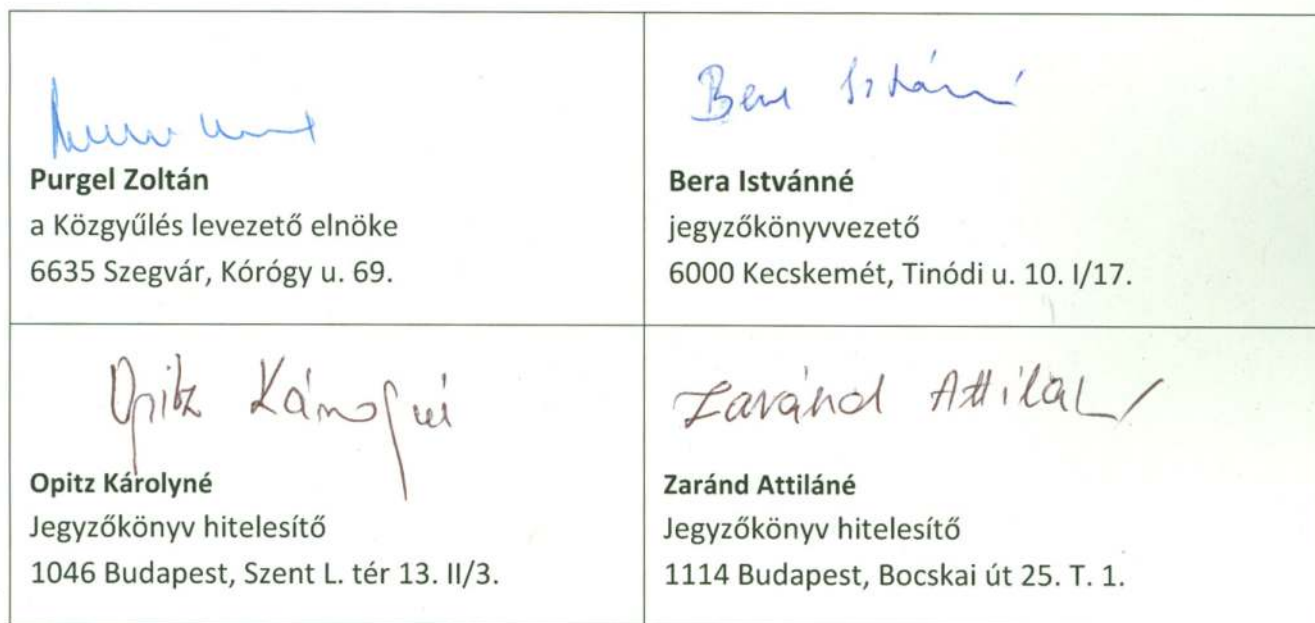 Bera Istvánné
Purgel Zoltán
a Közgyűlés levezető elnöke
6635 Szegvár, Kórógy u. 69.
Bera Istvánné
jegyzőkönyvvezető
6000 Kecskemét, Tinódi u. 10. I/17.
Opitz Károlyné
Opitz Károlyné
Jegyzőkönyv hitelesítő
1046 Budapest, Szent L. tér 13. II/3.
Zaránd Attiláné
Zaránd Attiláné
Jegyzőkönyv hitelesítő
1114 Budapest, Bocskai út 25. T. 1.